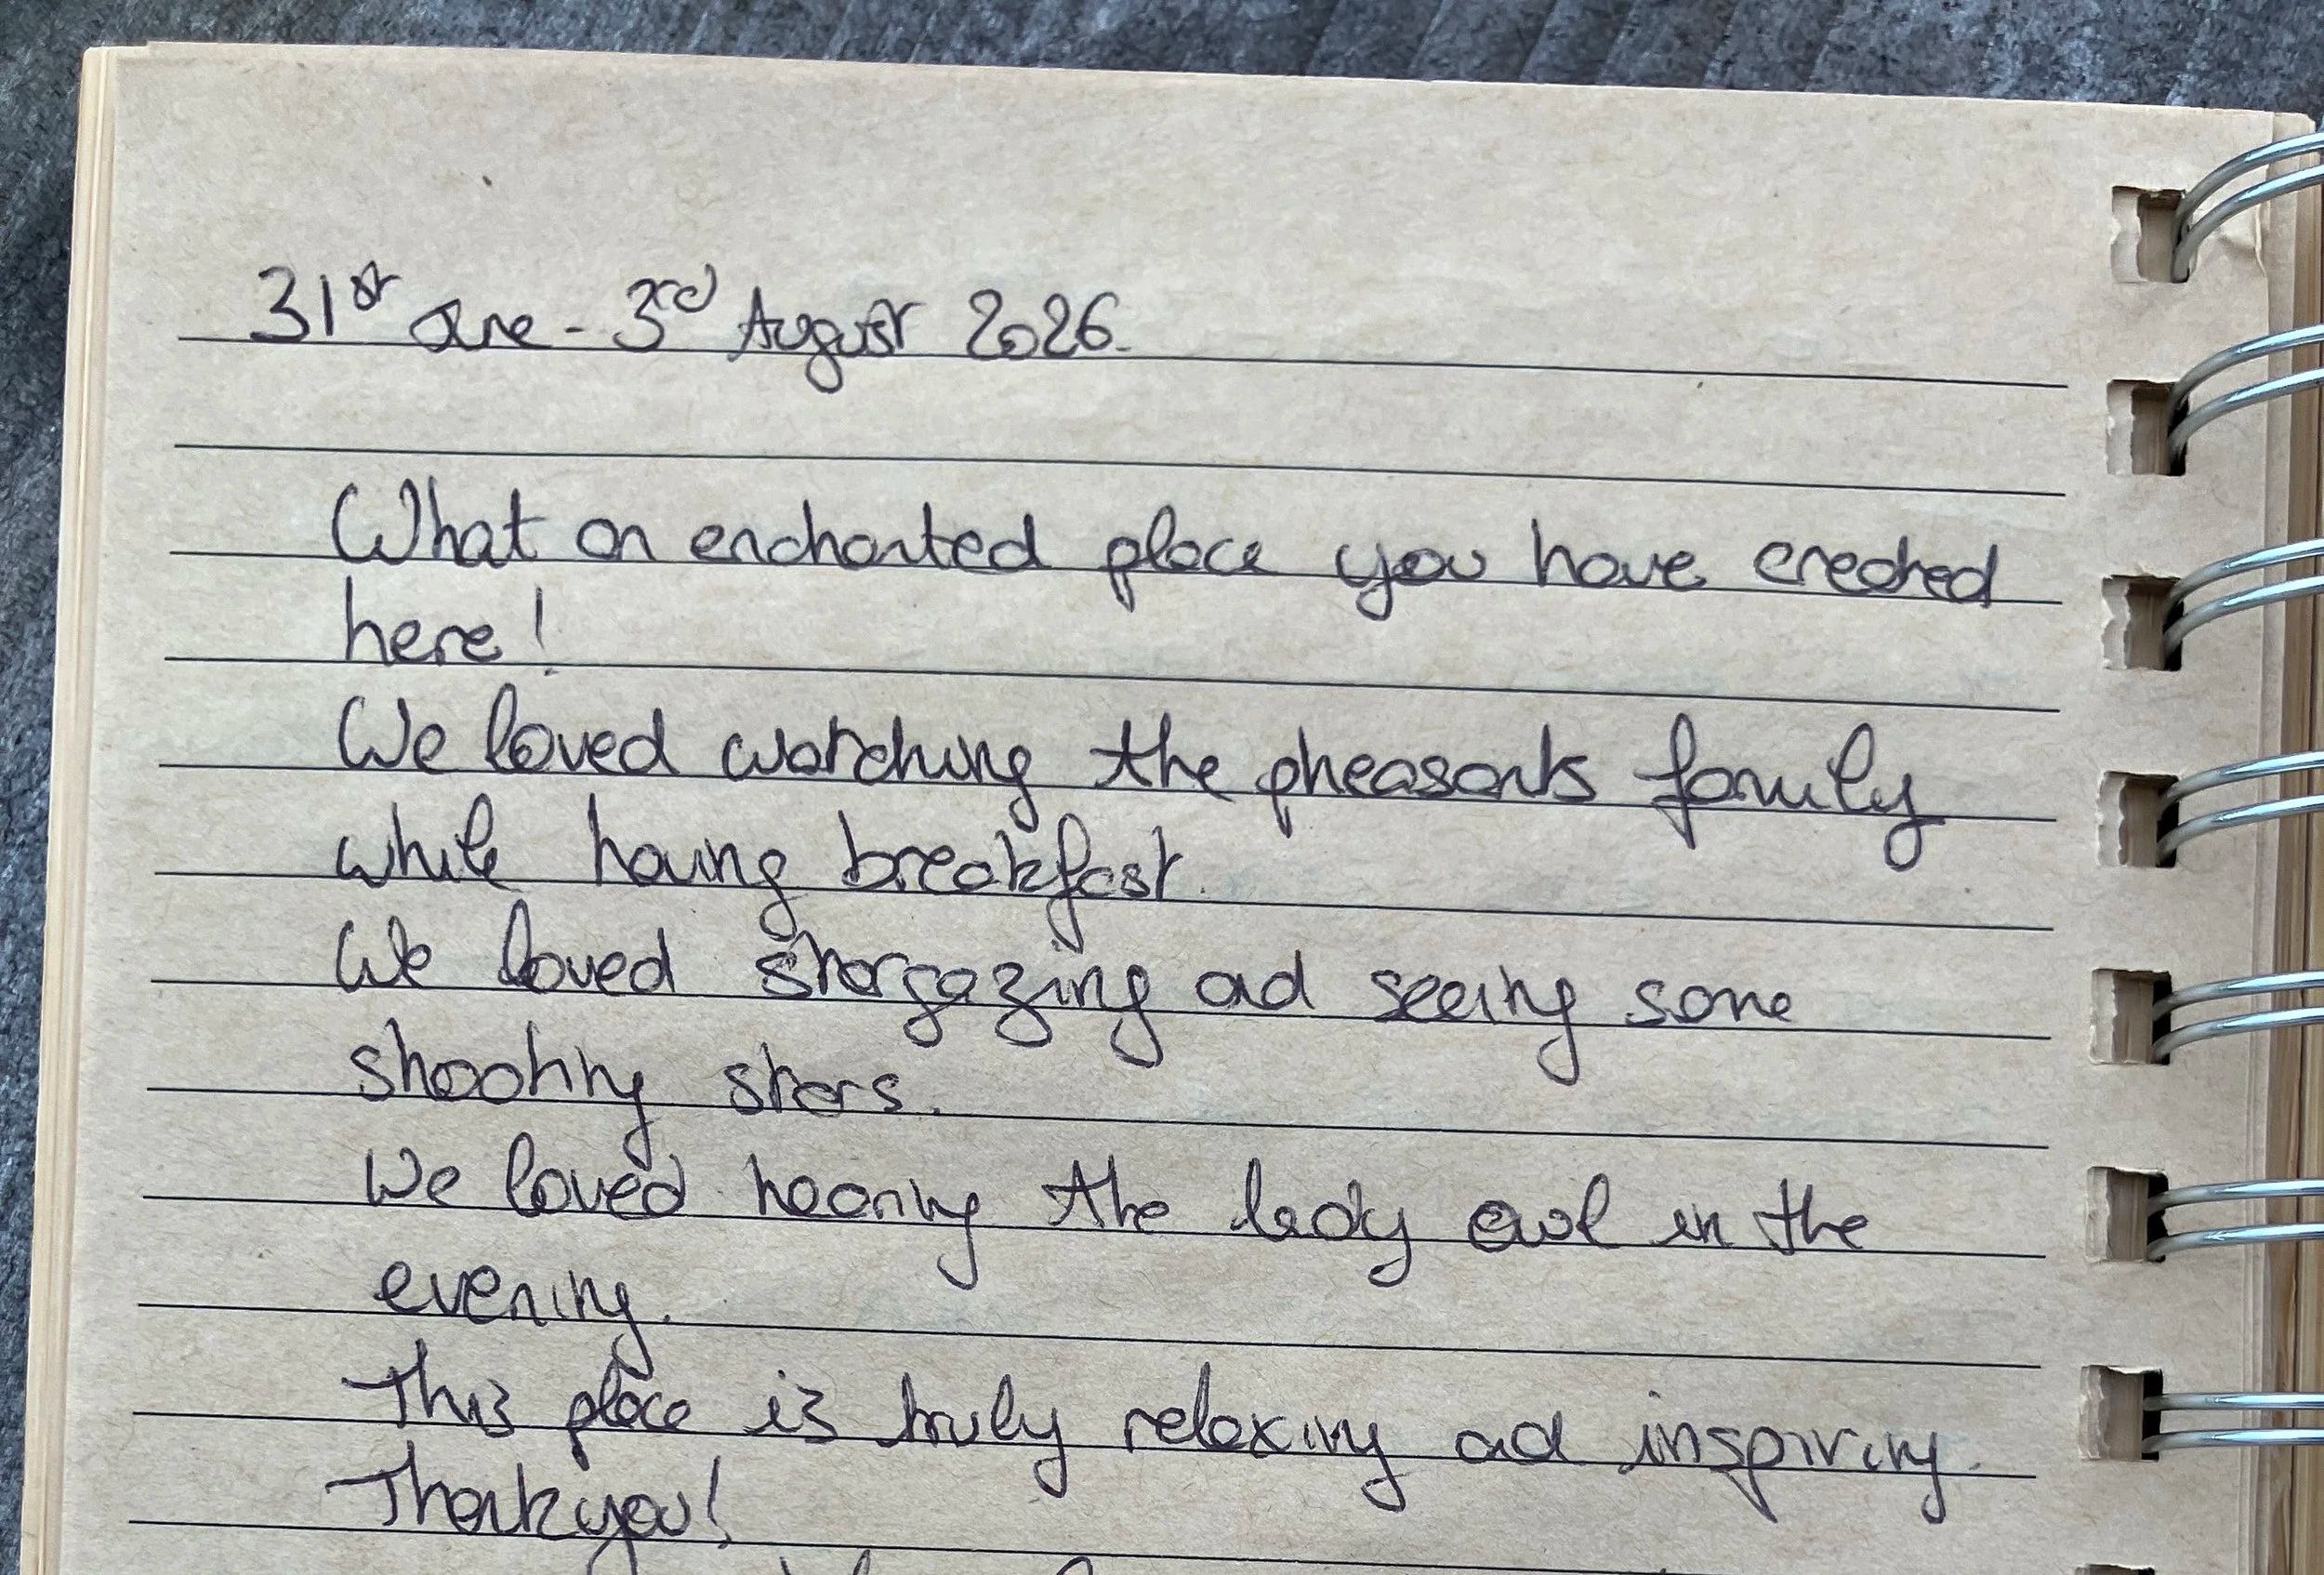 31st June - 3rd August 2026.
What an enchanted place you have created
here!
We loved watching the pheasants family
while having breakfast.
We loved stargazing and seeing some
shooting stars.
We loved hearing the lady owl in the
evening.
This place is truly relaxing and inspiring.
Thank you!